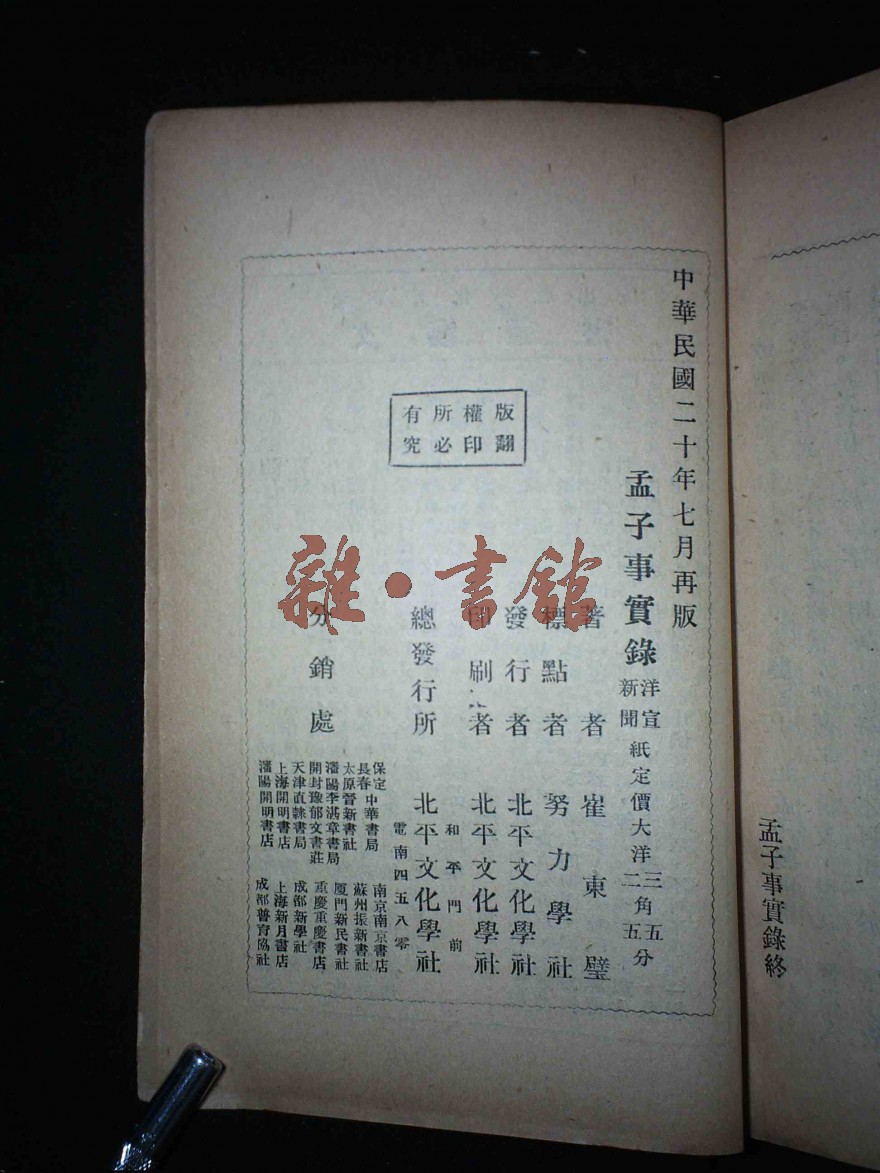 孟子事實錄終
中華民國二十年七月再版
孟子事實錄
洋宣
新聞
紙定價大洋
三角五分
二 五
著者 崔東壁
標點者 努力學社
發行者 北平文化學社
印刷者 北平文化學社
總發行所 北平文化學社
和平門前
電南四五八零
分銷處
保定
長春
中華書局
太原晉新書社
瀋陽李湛章書局
開封豫郁文書莊
天津直隸書局
上海開明書店
瀋陽開明書店
南京南京書店
蘇州振新書社
厦門新民書社
重慶重慶書店
成都新學社
上海新月書店
成都普育協社
版權所有
翻印必究
雜·書館